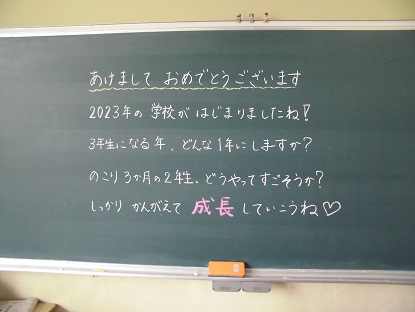 あけまして おめでとうございます
2023年の 学校が はじまりましたね!
3年生になる年、どんな1年にしますか?
のこり3か月の2年生、どうやってすごそうか?
しっかり かんがえて 成長していこうね♡